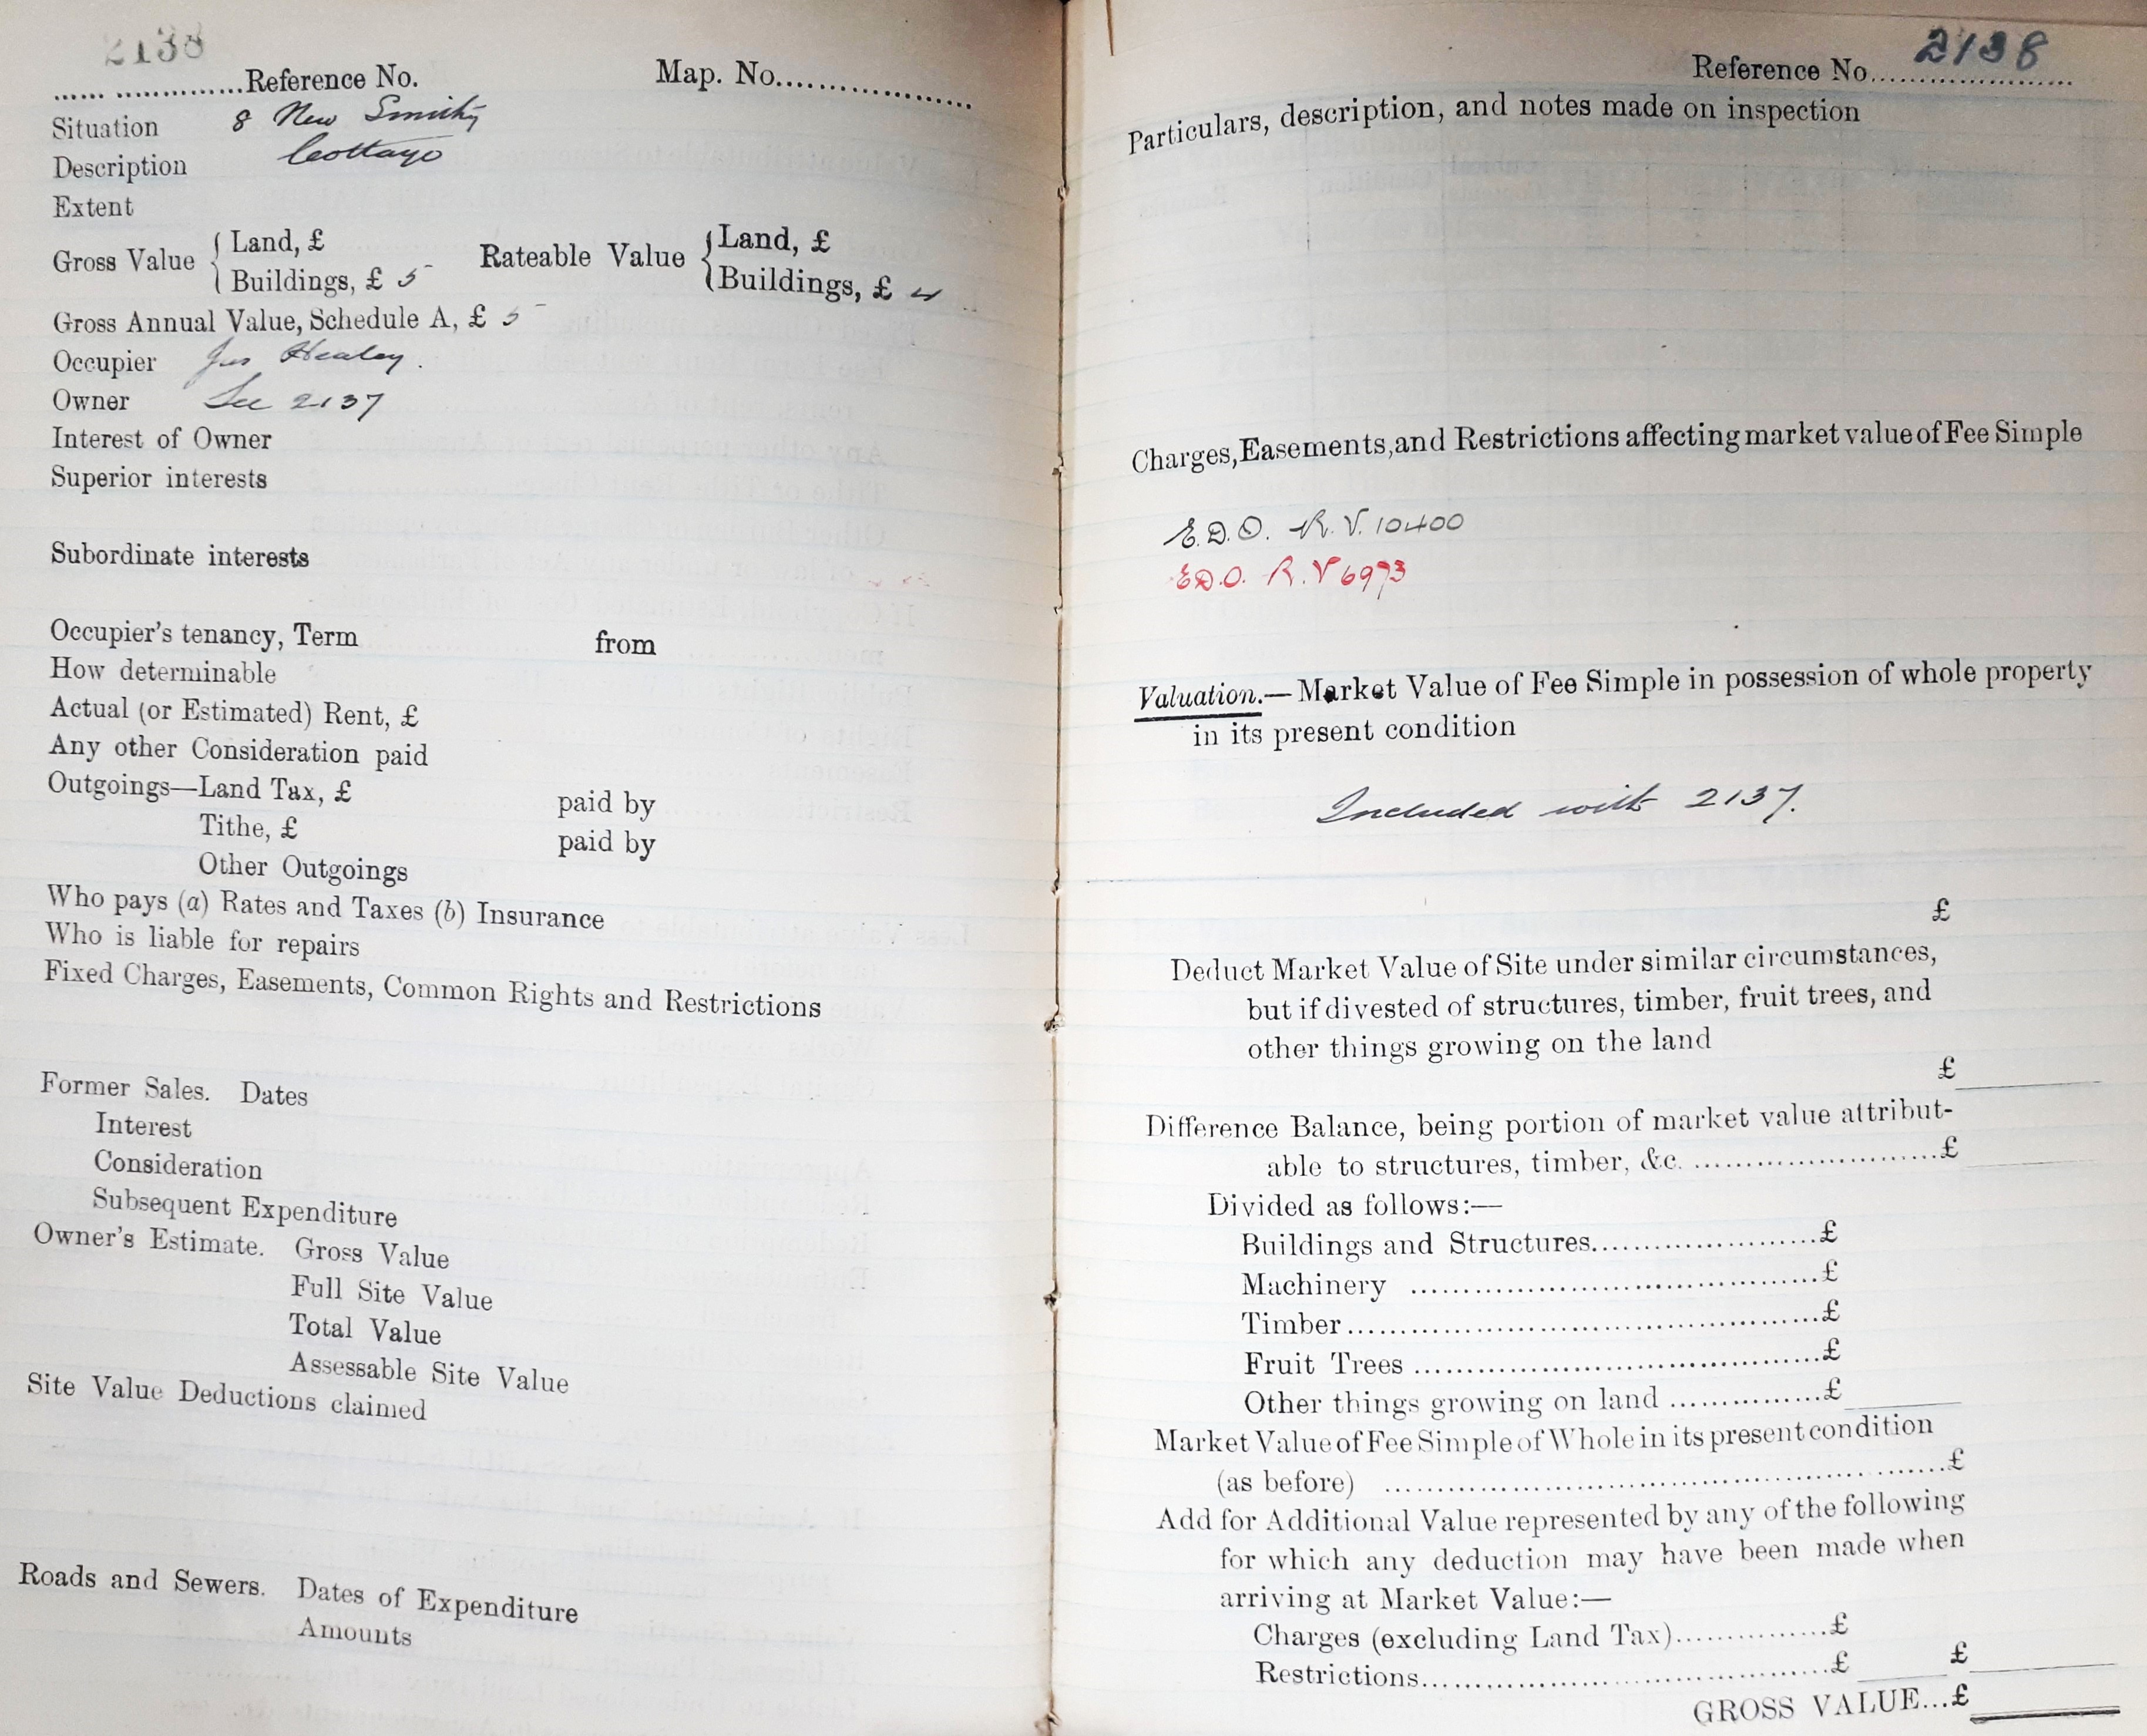 2138
...... ...............Reference No. Map. No......................
Situation 8 New Smithy
Description Cottage
Extent
Gross Value { Land, £ Rateable Value { Land, £
Buildings, £ 5 - Buildings, £ 4
Gross Annual Value, Schedule A, £ 5 -
Occupier Jas Healey.
Owner See 2137
Interest of Owner
Superior interests
Subordinate interests
Occupier's tenancy, Term from
How determinable
Actual (or Estimated) Rent, £
Any other Consideration paid
Outgoings—Land Tax, £ paid by
Tithe, £ paid by
Other Outgoings
Who pays (a) Rates and Taxes (b) Insurance
Who is liable for repairs
Fixed Charges, Easements, Common Rights and Restrictions
Former Sales. Dates
Interest
Consideration
Subsequent Expenditure
Owner's Estimate. Gross Value
Full Site Value
Total Value
Assessable Site Value
Site Value Deductions claimed
Roads and Sewers. Dates of Expenditure
Amounts
Reference No. 2138
Particulars, description, and notes made on inspection
Charges, Easements, and Restrictions affecting market value of Fee Simple
E.D.O. R.V. 10400
E.D.O. R.V 6973
Valuation.—Market Value of Fee Simple in possession of whole property
in its present condition
Included with 2137.
£
Deduct Market Value of Site under similar circumstances,
but if divested of structures, timber, fruit trees, and
other things growing on the land
£
Difference Balance, being portion of market value attribut-
able to structures, timber, &c. ...........................£
Divided as follows:—
Buildings and Structures.........................£
Machinery .............................................£
Timber....................................................£
Fruit Trees .............................................£
Other things growing on land ................£
Market Value of Fee Simple of Whole in its present condition
(as before) ...............................................................£
Add for Additional Value represented by any of the following
for which any deduction may have been made when
arriving at Market Value:—
Charges (excluding Land Tax)................£
Restrictions.............................................£ £
GROSS VALUE...£